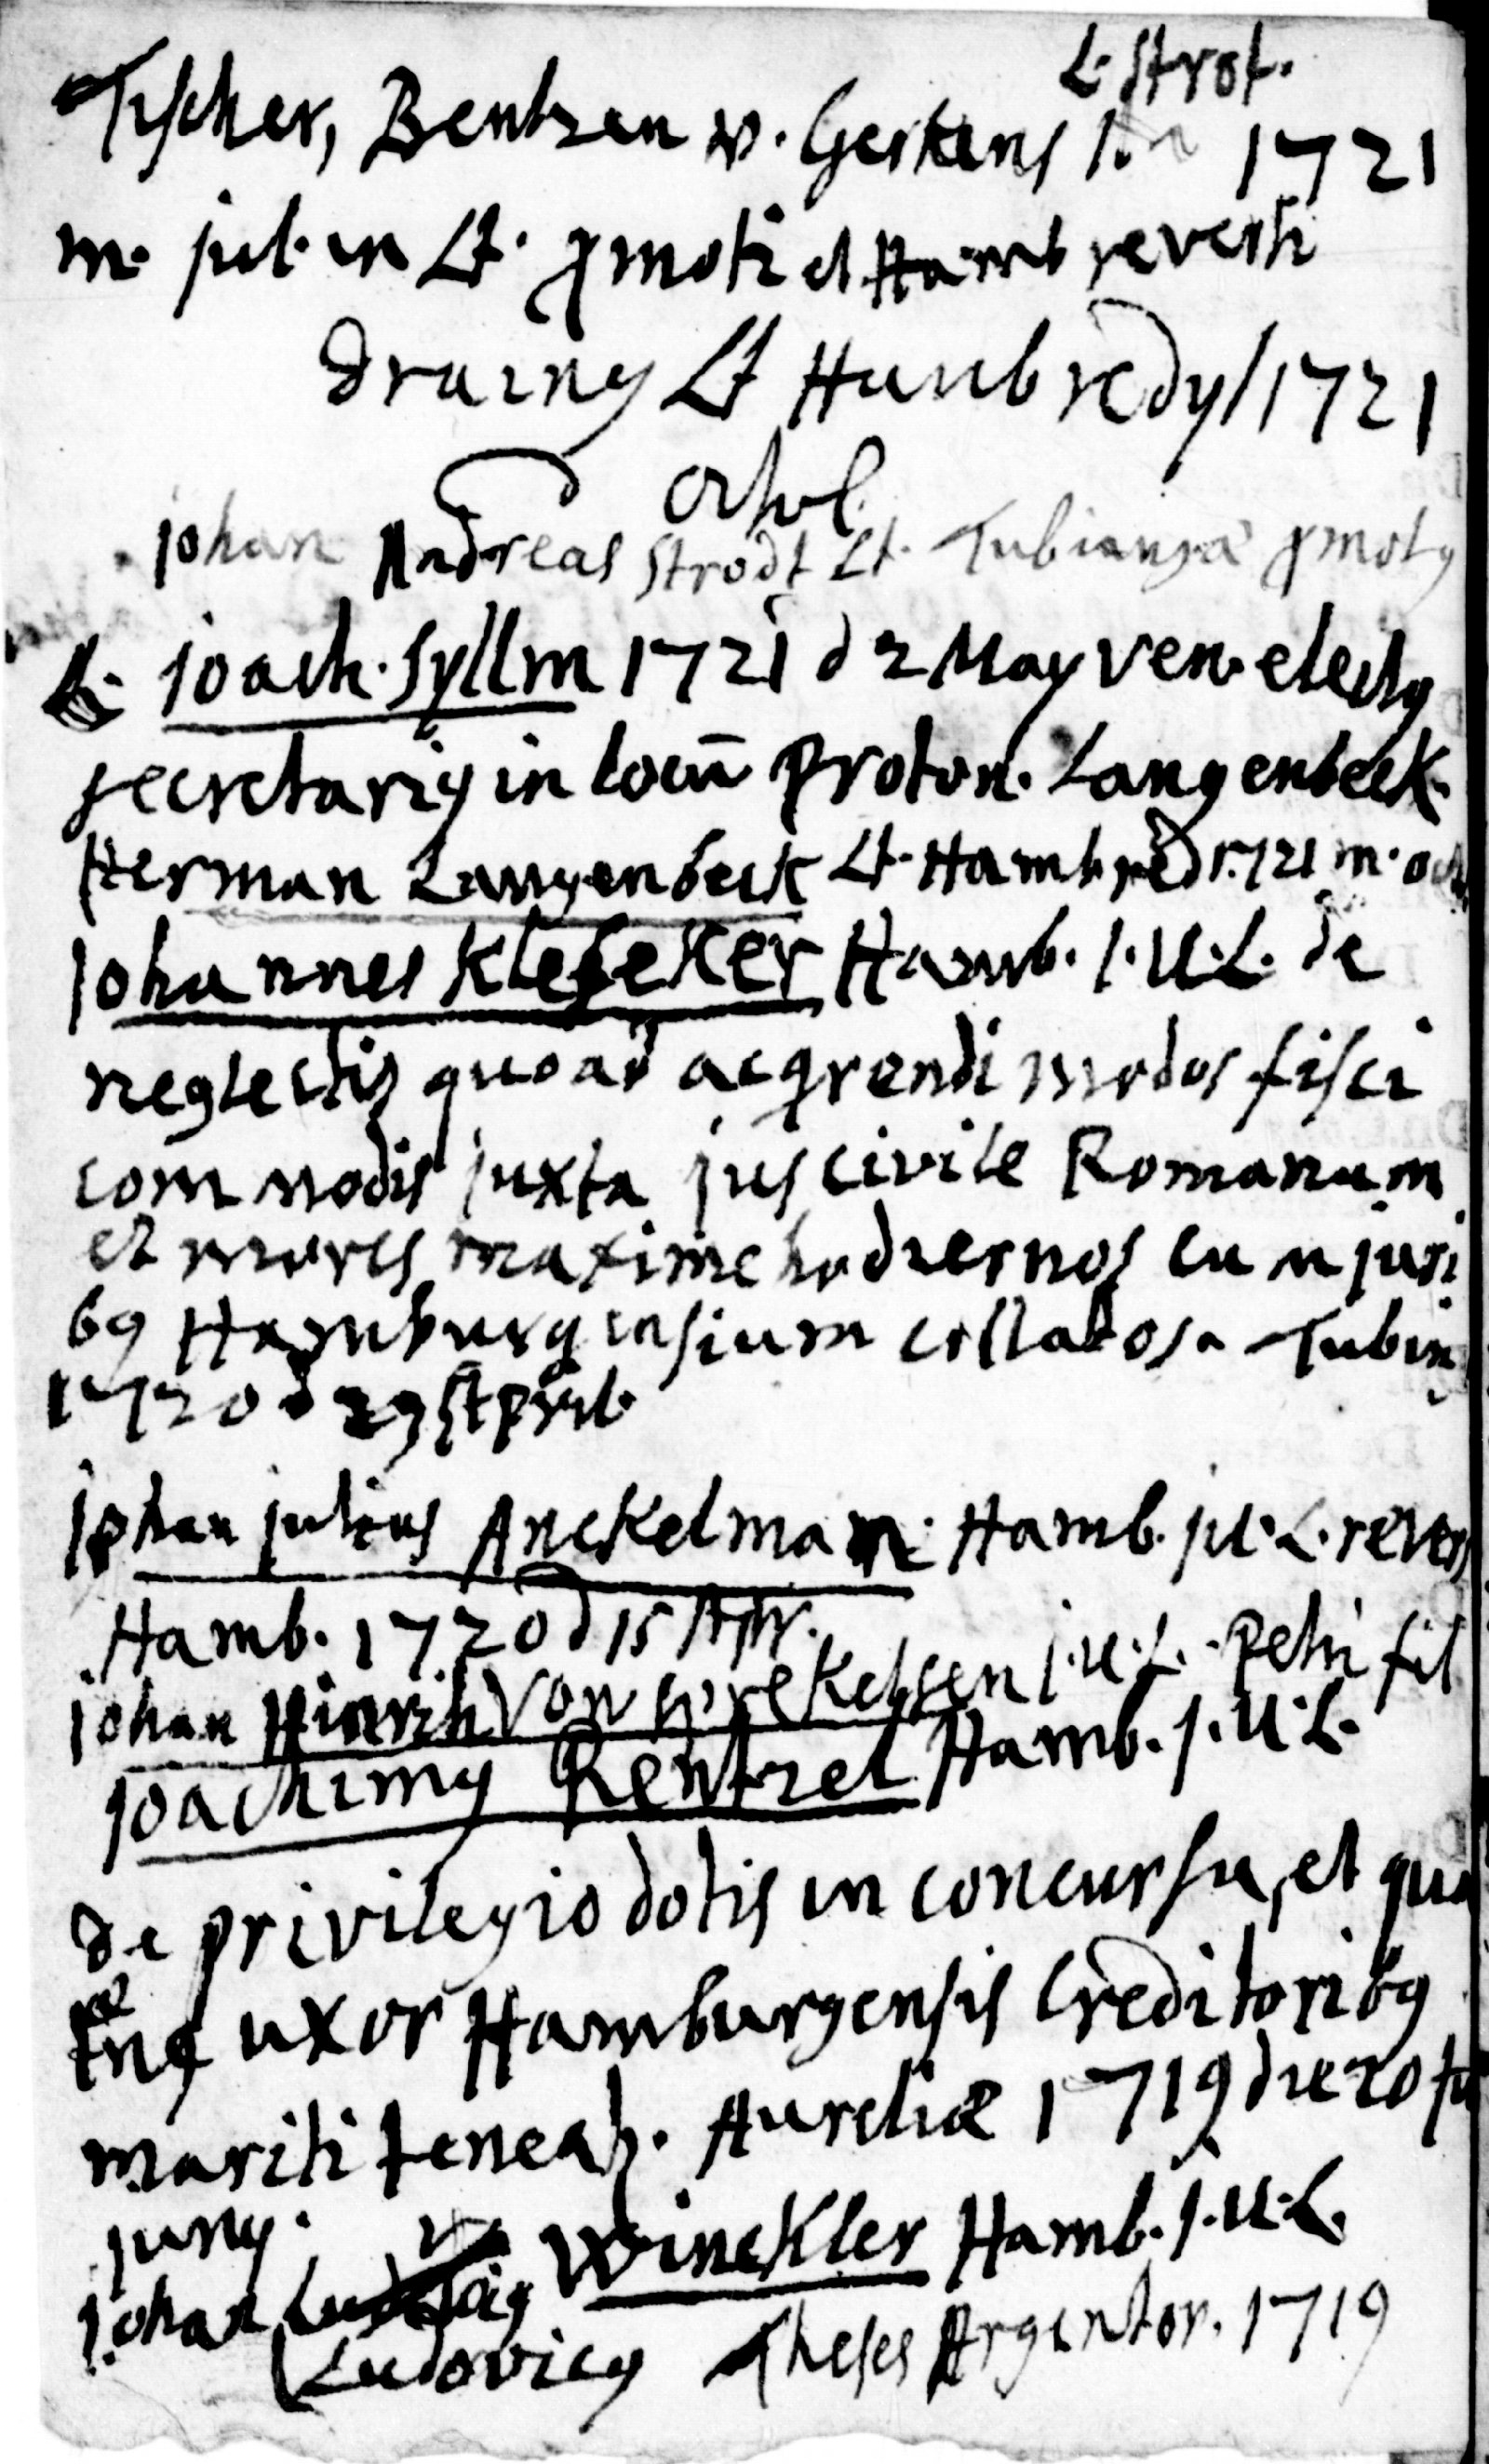 L. Strot.
Tischer, Bentzen v. Gerkens 1721
m. jul. in Lt. pmoti et Hamb reversi
Lt Hamb redy 1721
Octob.
johan Andreas Strodt Lt. Tubingæ pmotꝰ
Lt. joach. Syllm 1721 d 2 May ven. electꝰ
secretariꝰ in locū Proton. Langenbeck.
Herman Langenbeck Lt. Hamb red 1721 m. oct
johannes Klefeker Hamb. J.U.L. de
neglectis quoad acqrendi modos fisci
commodis juxta jus civile Romanum
et mores maxime hodiernos cum juri
bꝰ Hamburgensium collatos. Tubing
1720 d 29 Septemb.
johan julius Anckelman. Hamb. j.U.L. revers
Hamb. 1720 d 15
johan Hinrich Von Spreckelsen j.U.L. Petri fil
joachimꝰ Rentzel Hamb. J.U.L.
de privilegio dotis in concursu, et qua
tenꝰ uxor Hamburgensis Creditoribꝰ
mariti teneat. Aureliæ 1719 die 20
junꝰ.
johan Ludwig Winckler Hamb. J.U.L.
Ludovicꝰ Theses Argentor. 1719